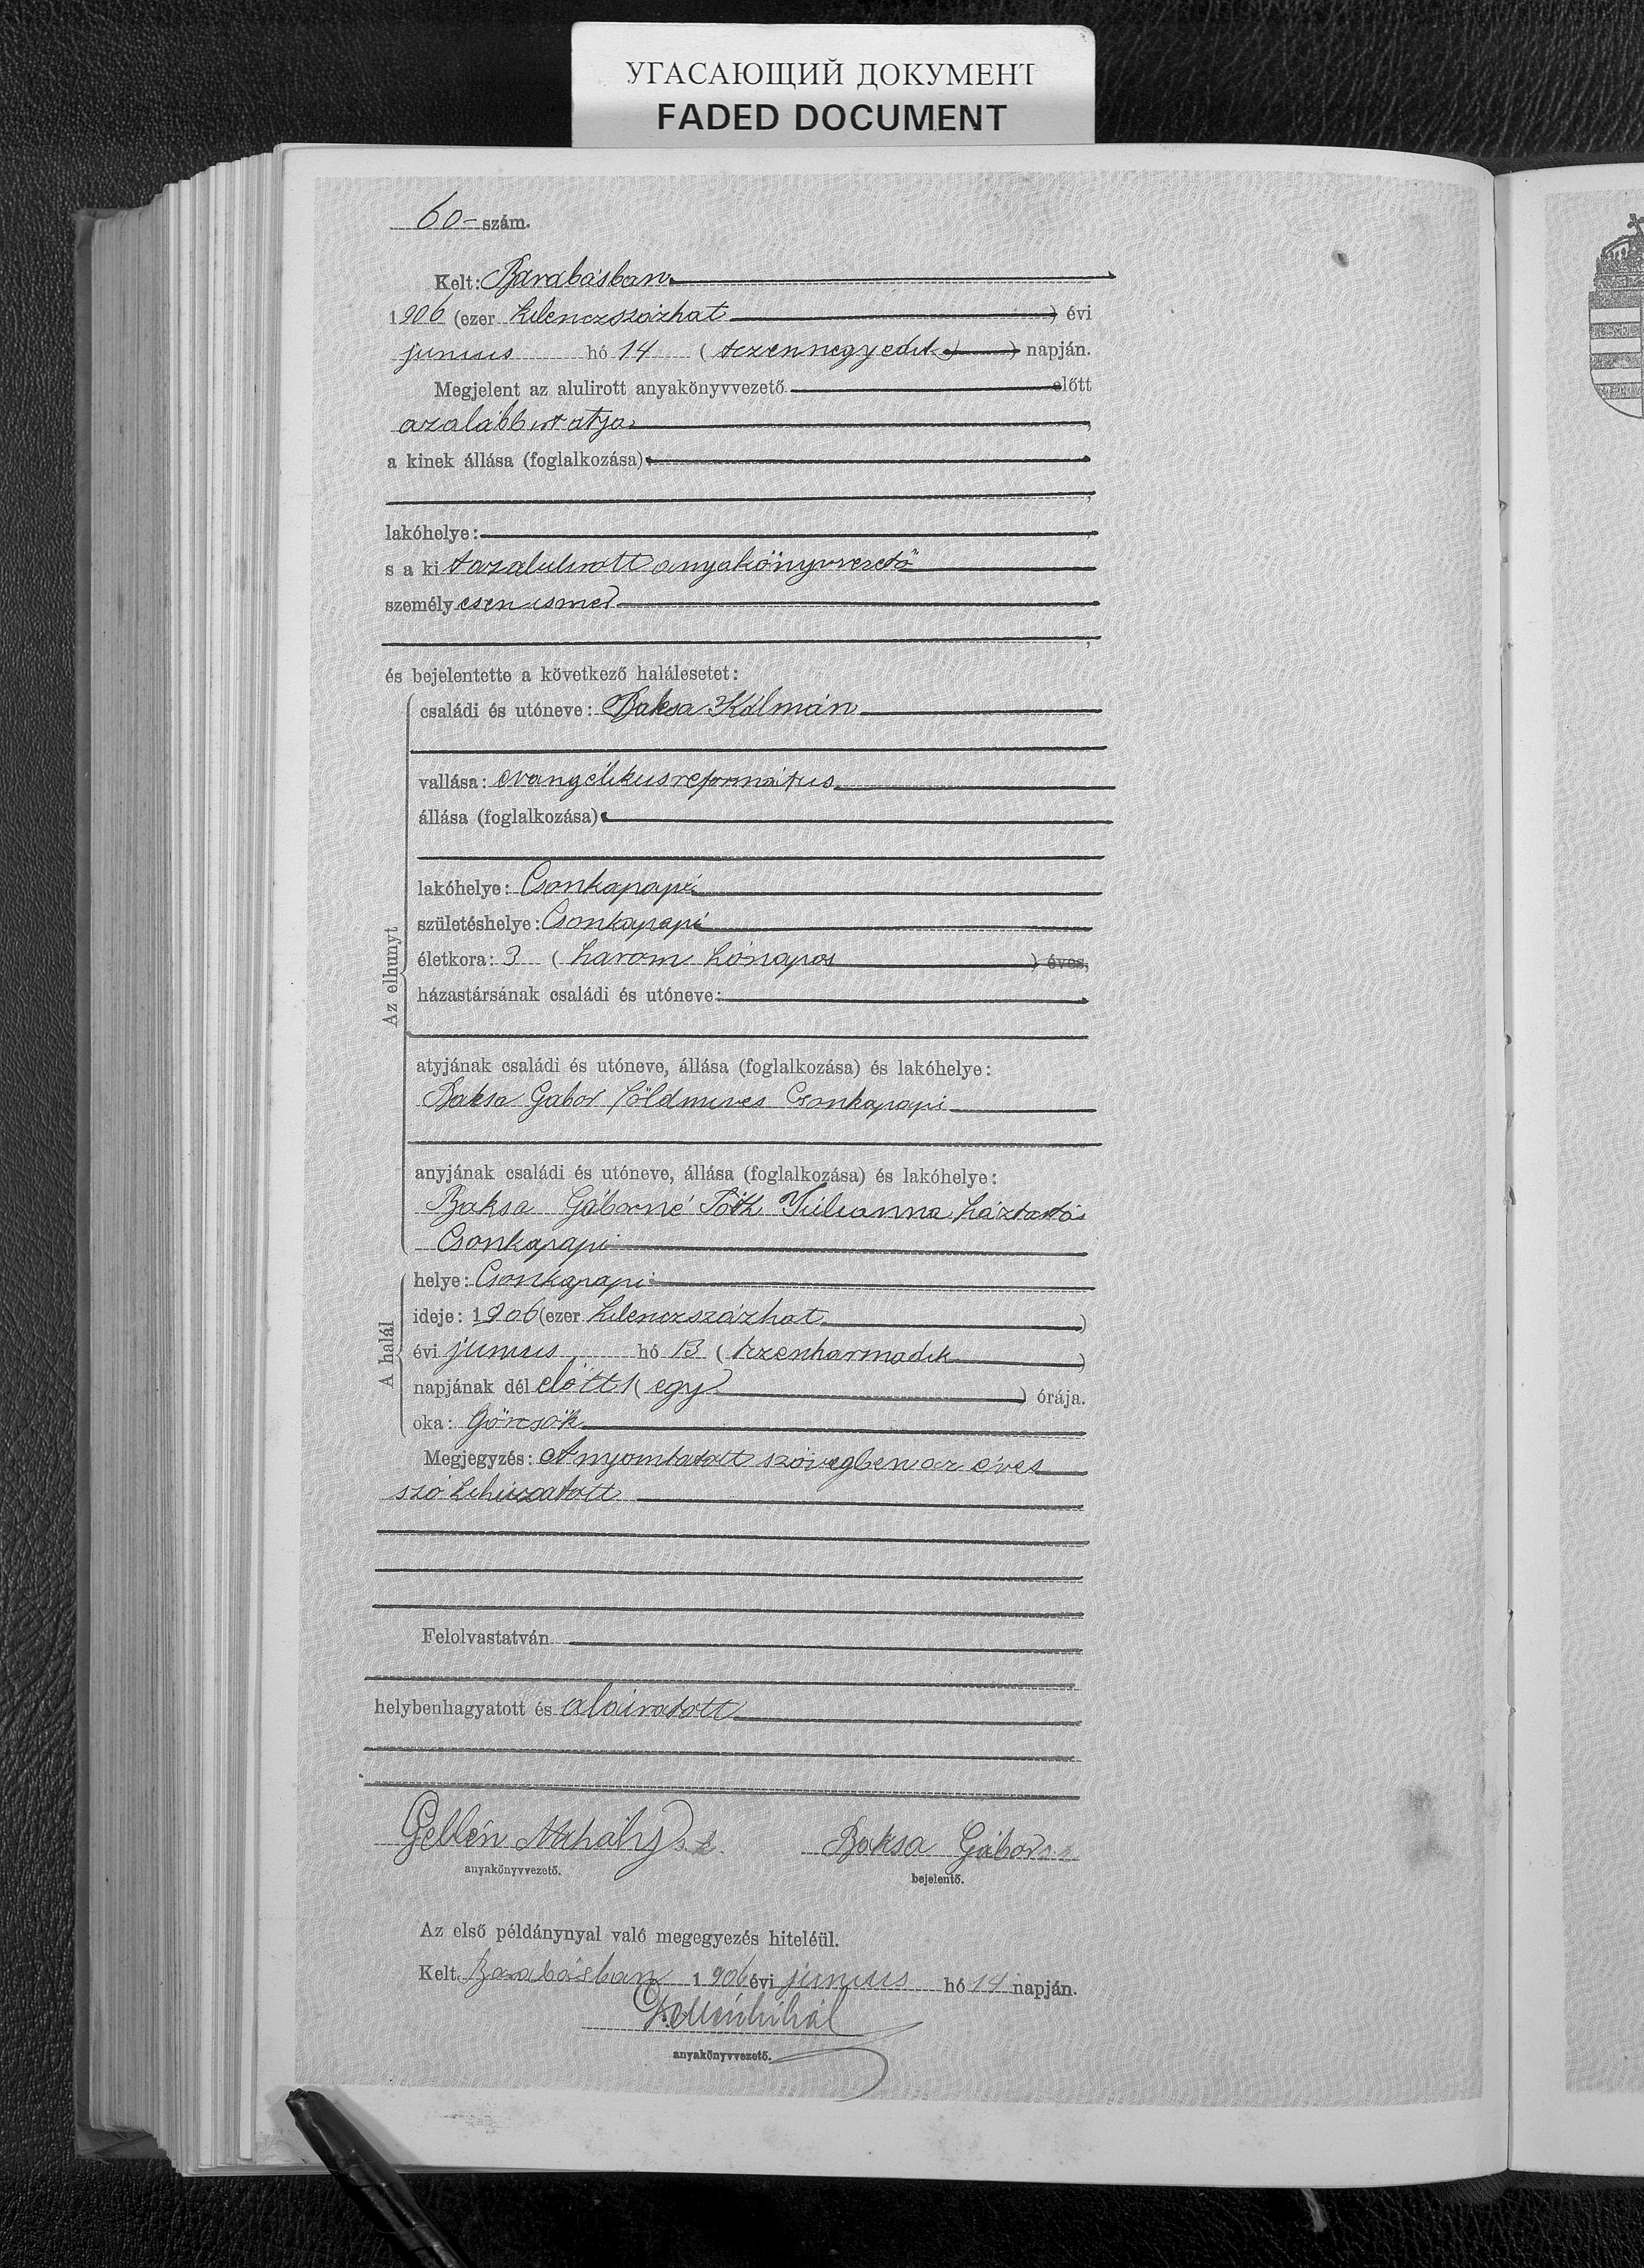 УГАСАЮЩИЙ ДОКУМЕНТ
FADED DOCUMENT
60 – szám.
Kelt: Barabásban
1906 (ezer kilenczszázhat ) évi
junius hó 14 ( tizennegyedik ) napján.
Megjelent az alulirott anyakönyvvezető előtt
az alább irt atyja
a kinek állása (foglalkozása)
lakóhelye:
s a kit az alulirott anyakönyvvezető
személyesen ismer
és bejelentette a következő halálesetet:
Az elhunyt
családi és utóneve: Baksa Kálmán
vallása: evangélikus református
állása (foglalkozása)
lakóhelye: Csonkapapi
születéshelye: Csonkapapi
életkora: 3 ( három hónapos ) éves,
házastársának családi és utóneve:
atyjának családi és utóneve, állása (foglalkozása) és lakóhelye:
Baksa Gábor földmives Csonkapapi
anyjának családi és utóneve, állása (foglalkozása) és lakóhelye:
Baksa Gáborné Tóth Julianna háztartás
Csonkapapi
A halál
helye: Csonkapapi
ideje: 1906 (ezer kilenczszázhat )
évi junius hó 13 ( tizenharmadik )
napjának dél előtt 1 ( egy ) órája.
oka: Görcsök
Megjegyzés: A nyomtatott szövegben az éves
szó kihúzatott
Felolvastatván
helybenhagyatott és aláiratott
Gellén Mihály s. k. Baksa Gábor s. k.
anyakönyvvezető. bejelentő.
Az első példánynyal való megegyezés hiteléül.
Kelt Barabásban 1906 évi junius hó 14 napján.
anyakönyvvezető.